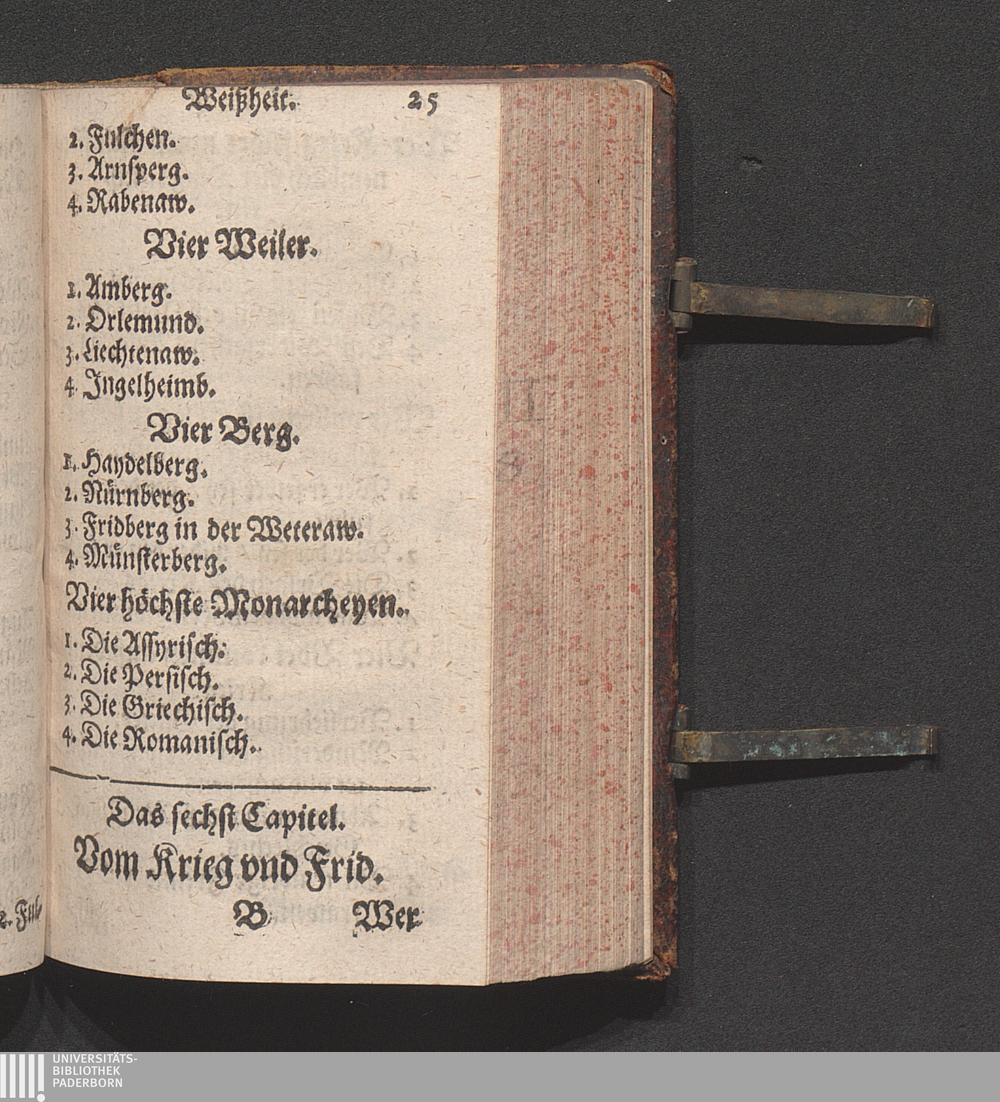 Weißheit. 25
2. Fulchen.
3. Arnsperg.
4. Rabenaw.
Vier Weiler.
1. Amberg.
2. Orlemund.
3. Liechtenaw.
4. Ingelheimb.
Vier Berg.
1. Haydelberg.
2. Nürnberg.
3. Fridberg in der Weteraw.
4. Münsterberg.
Vier höchste Monarcheyen.
1. Die Assyrisch.
2. Die Persisch.
3. Die Griechisch.
4. Die Romanisch.
Das sechst Capitel.
Vom Krieg vnd Frid.
B Wer
2. Ful-
UNIVERSITÄTS-
BIBLIOTHEK
PADERBORN